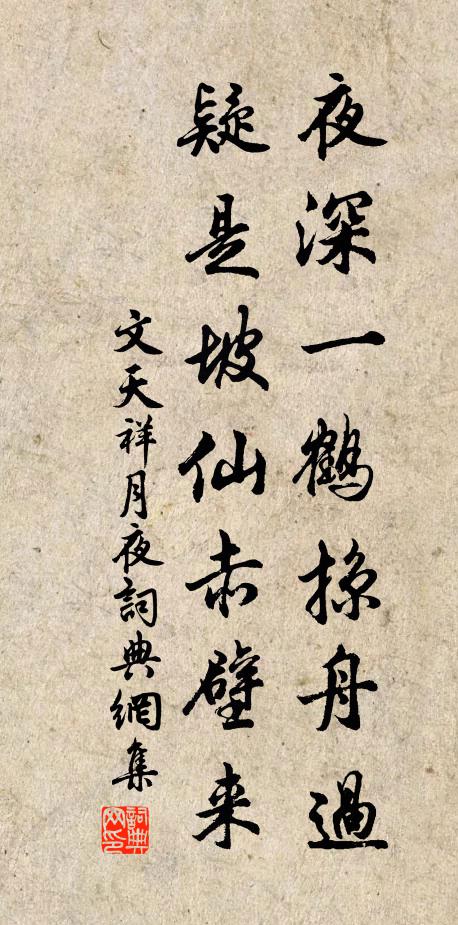 夜深一鶴掠舟過
疑是坡仙赤壁来
文天祥月夜詞典網集
詞典网印